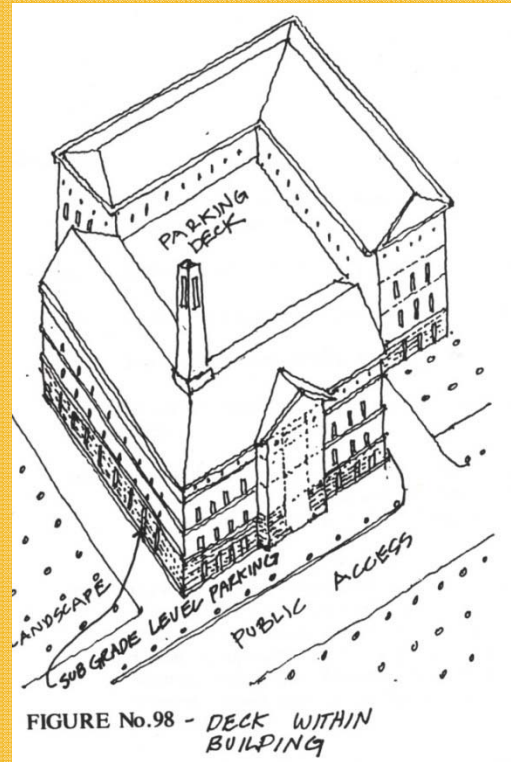 PARKING
DECK
LANDSCAPE
SUBGRADE LEVEL PARKING
PUBLIC ACCESS
FIGURE No.98 - DECK WITHIN
BUILDING